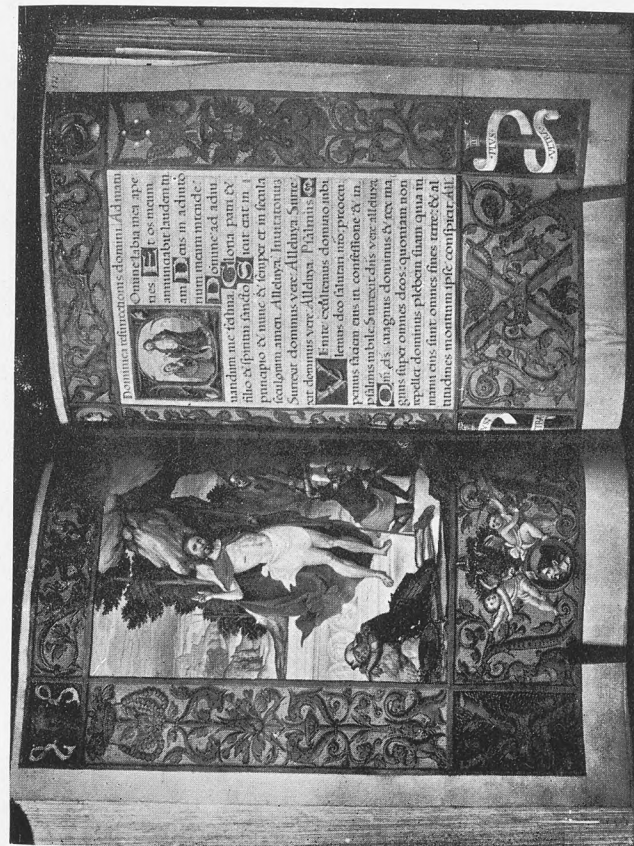 Dominica resurrectionis domini. Ad mam
Omine labia mea ape
ries. Et os meum
annunciabit laudem tu
am. Deus in adiuto
rium meum intende.
Domine ad adiu
uandum me festina. Gloria patri &
filio & spiritui sancto. Sicut erat in
principio & nunc & semper et in secula
seculorum amen. Alleluya. Inuitatorius
Surrexit dominus vere. Alleluya. Surre
xit dominus vere. Alleluya. Psalmus.
Enite exultemus domino iubi
lemus deo salutari nostro preocu
pemus faciem eius in confessione & in
psalmis iubile. Surrexit dns vere alleluya.
Qm ds magnus dominus & rex ma
gnus super omnes deos: quoniam non
repellet dominus plebem suam quia in
manu eius sunt omnes fines terre: & al
titudines montium ipse conspicit. All.
PLVS
VLTRA